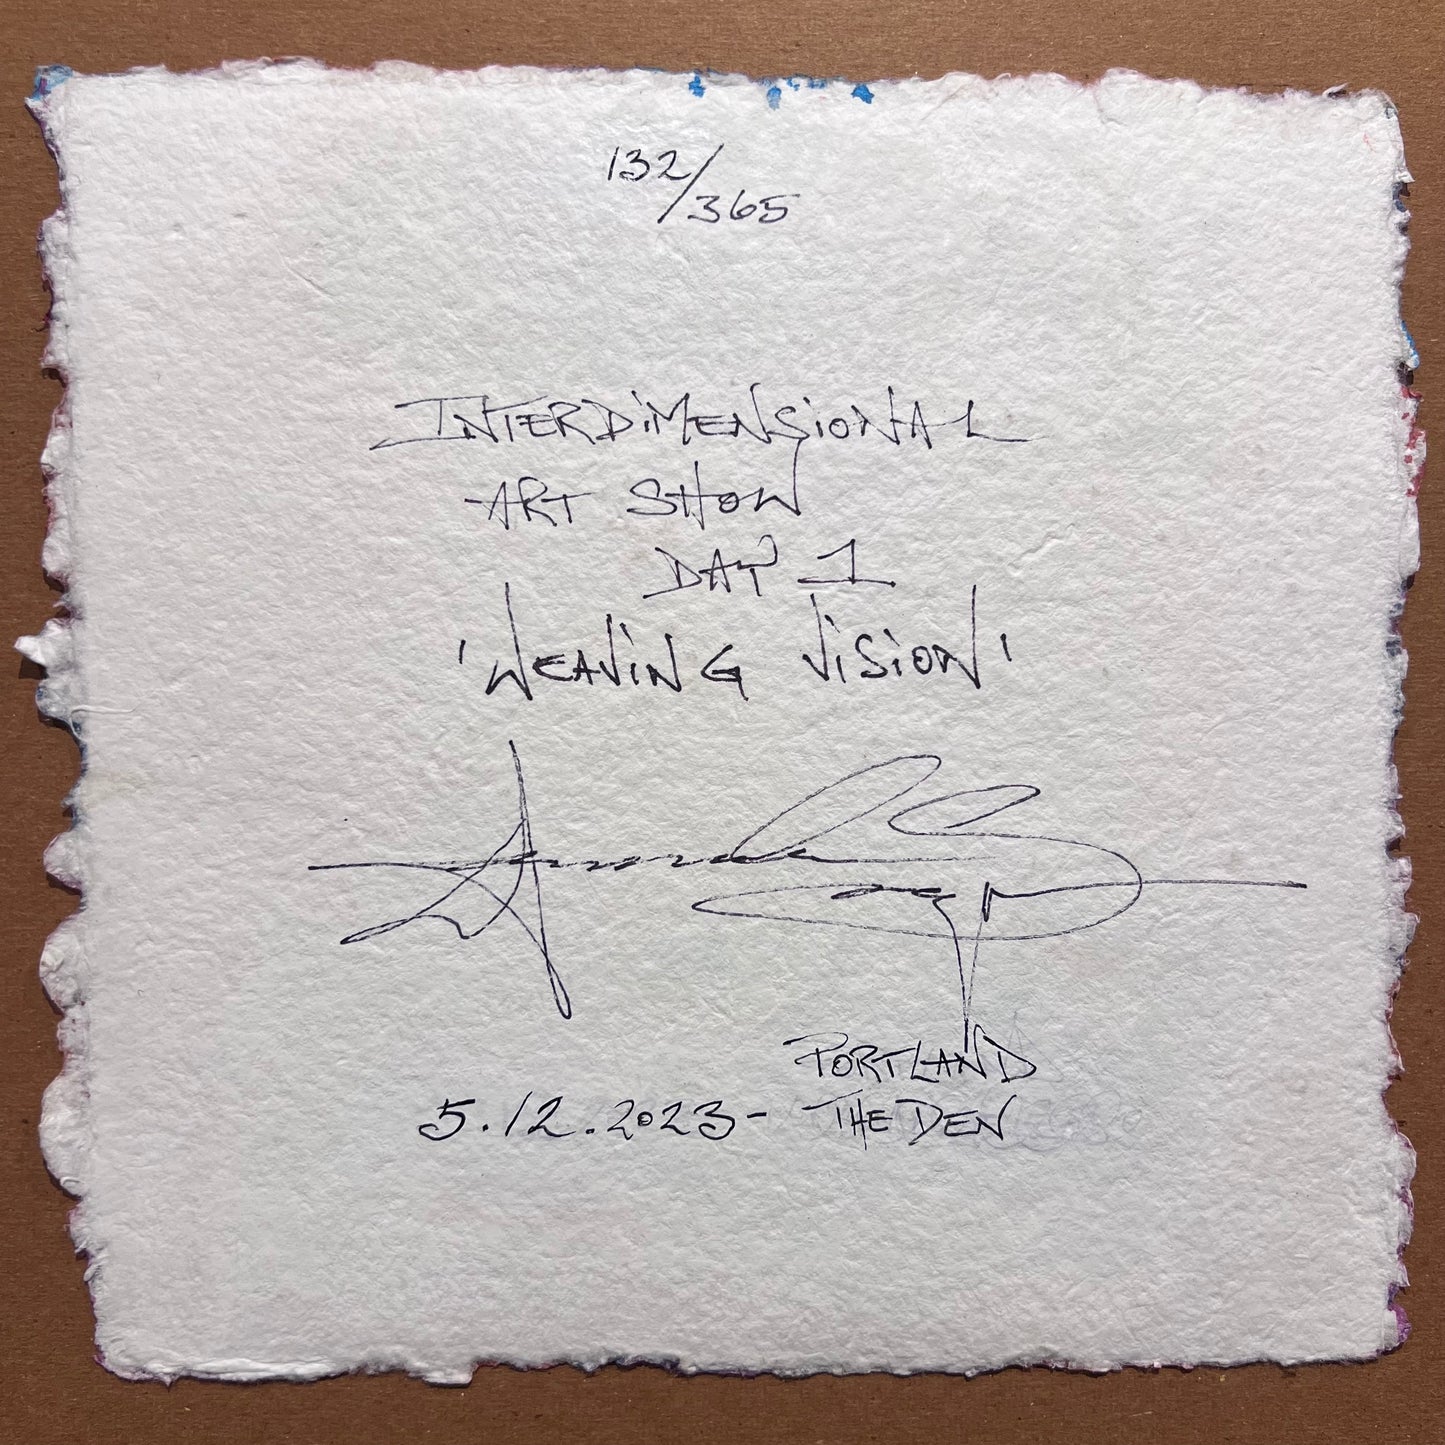 132/365
INTERDiMENSiONAL
ART SHOW
DAY 1
'WEAViNG ViSiON'
PORTLAND
5.12.2023- THE DEN